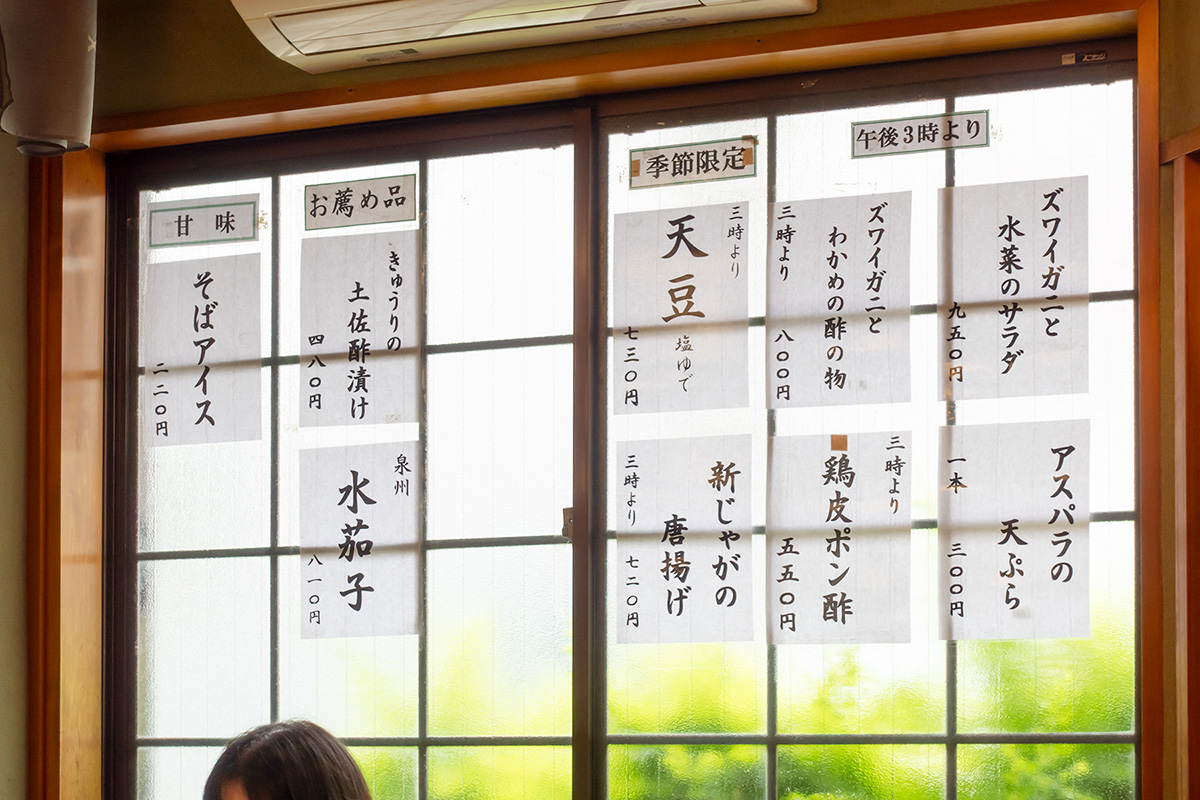 午後3時より
ズワイガニと
水菜のサラダ
九五〇円
ズワイガニと
わかめの酢の物
三時より 八〇〇円
アスパラの
天ぷら
一本 三〇〇円
三時より
鶏皮ポン酢
五五〇円
季節限定
三時より
天豆 塩ゆで
七三〇円
新じゃがの
唐揚げ
三時より 七二〇円
お薦め品
きゅうりの
土佐酢漬け
四八〇円
泉州
水茄子
八一〇円
甘味
そばアイス
二二〇円